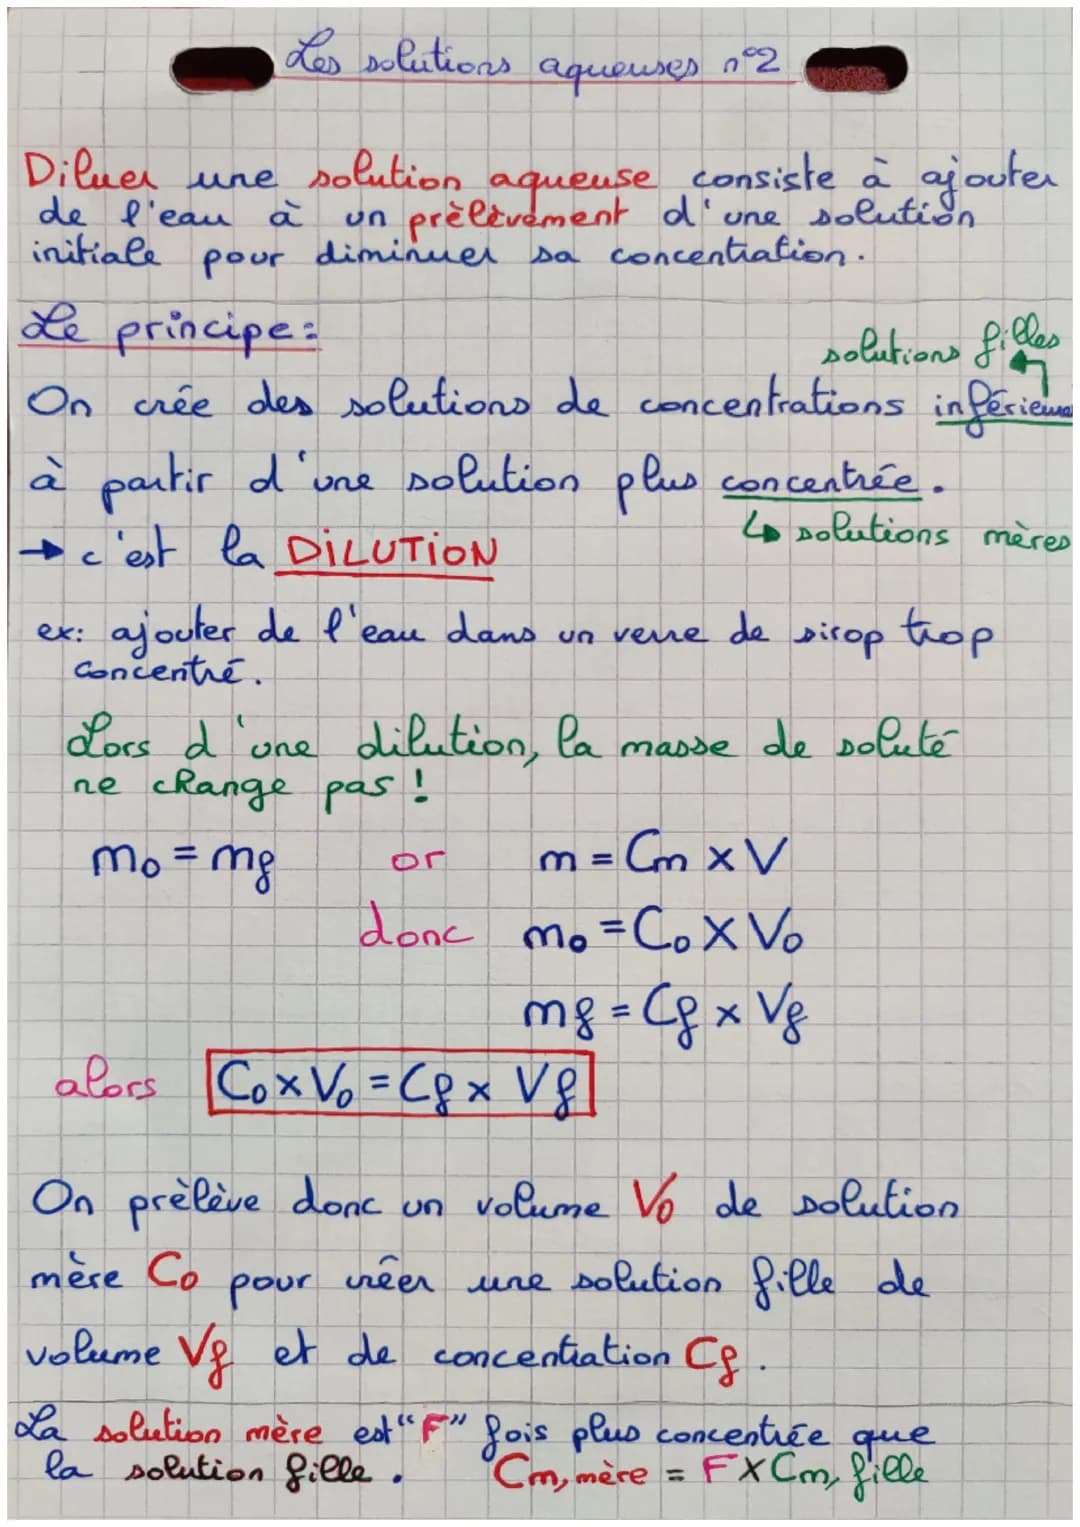 Les solutions aqueuses n°2
Diluer une solution aqueuse consiste à ajouter
de l'eau à un prèlèvement d'une solution
initiale pour diminuer sa concentration.
Le principe :
solutions filles
On crée des solutions de concentrations inférieures
à partir d'une solution plus concentrée.
↳ solutions mères
→ c'est la DILUTION
ex: ajouter de l'eau dans un verre de sirop trop
concentré.
Lors d'une dilution, la masse de soluté
ne change pas !
mo = mf or m = Cm x V
donc mo = Co x Vo
mf = Cf x Vf
alors Co x Vo = Cf x Vf
On prèlève donc un volume Vo de solution
mère Co pour créer une solution fille de
volume Vf et de concentration Cf.
La solution mère est "F" fois plus concentrée que
la solution fille. Cm, mère = F X Cm, fille